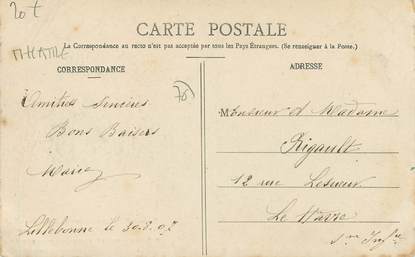 20t
THEATRE
CARTE POSTALE
La Correspondance au recto n'est pas acceptée par tous les Pays Étrangers. (Se renseigner à la Poste.)
CORRESPONDANCE
Amitiés Sincères
Bons Baisers
Marie
Lillebonne le 30.8.07
ADRESSE
Monsieur et Madame
Rigault
12 rue Lesueur
Le Havre
Sne Infre